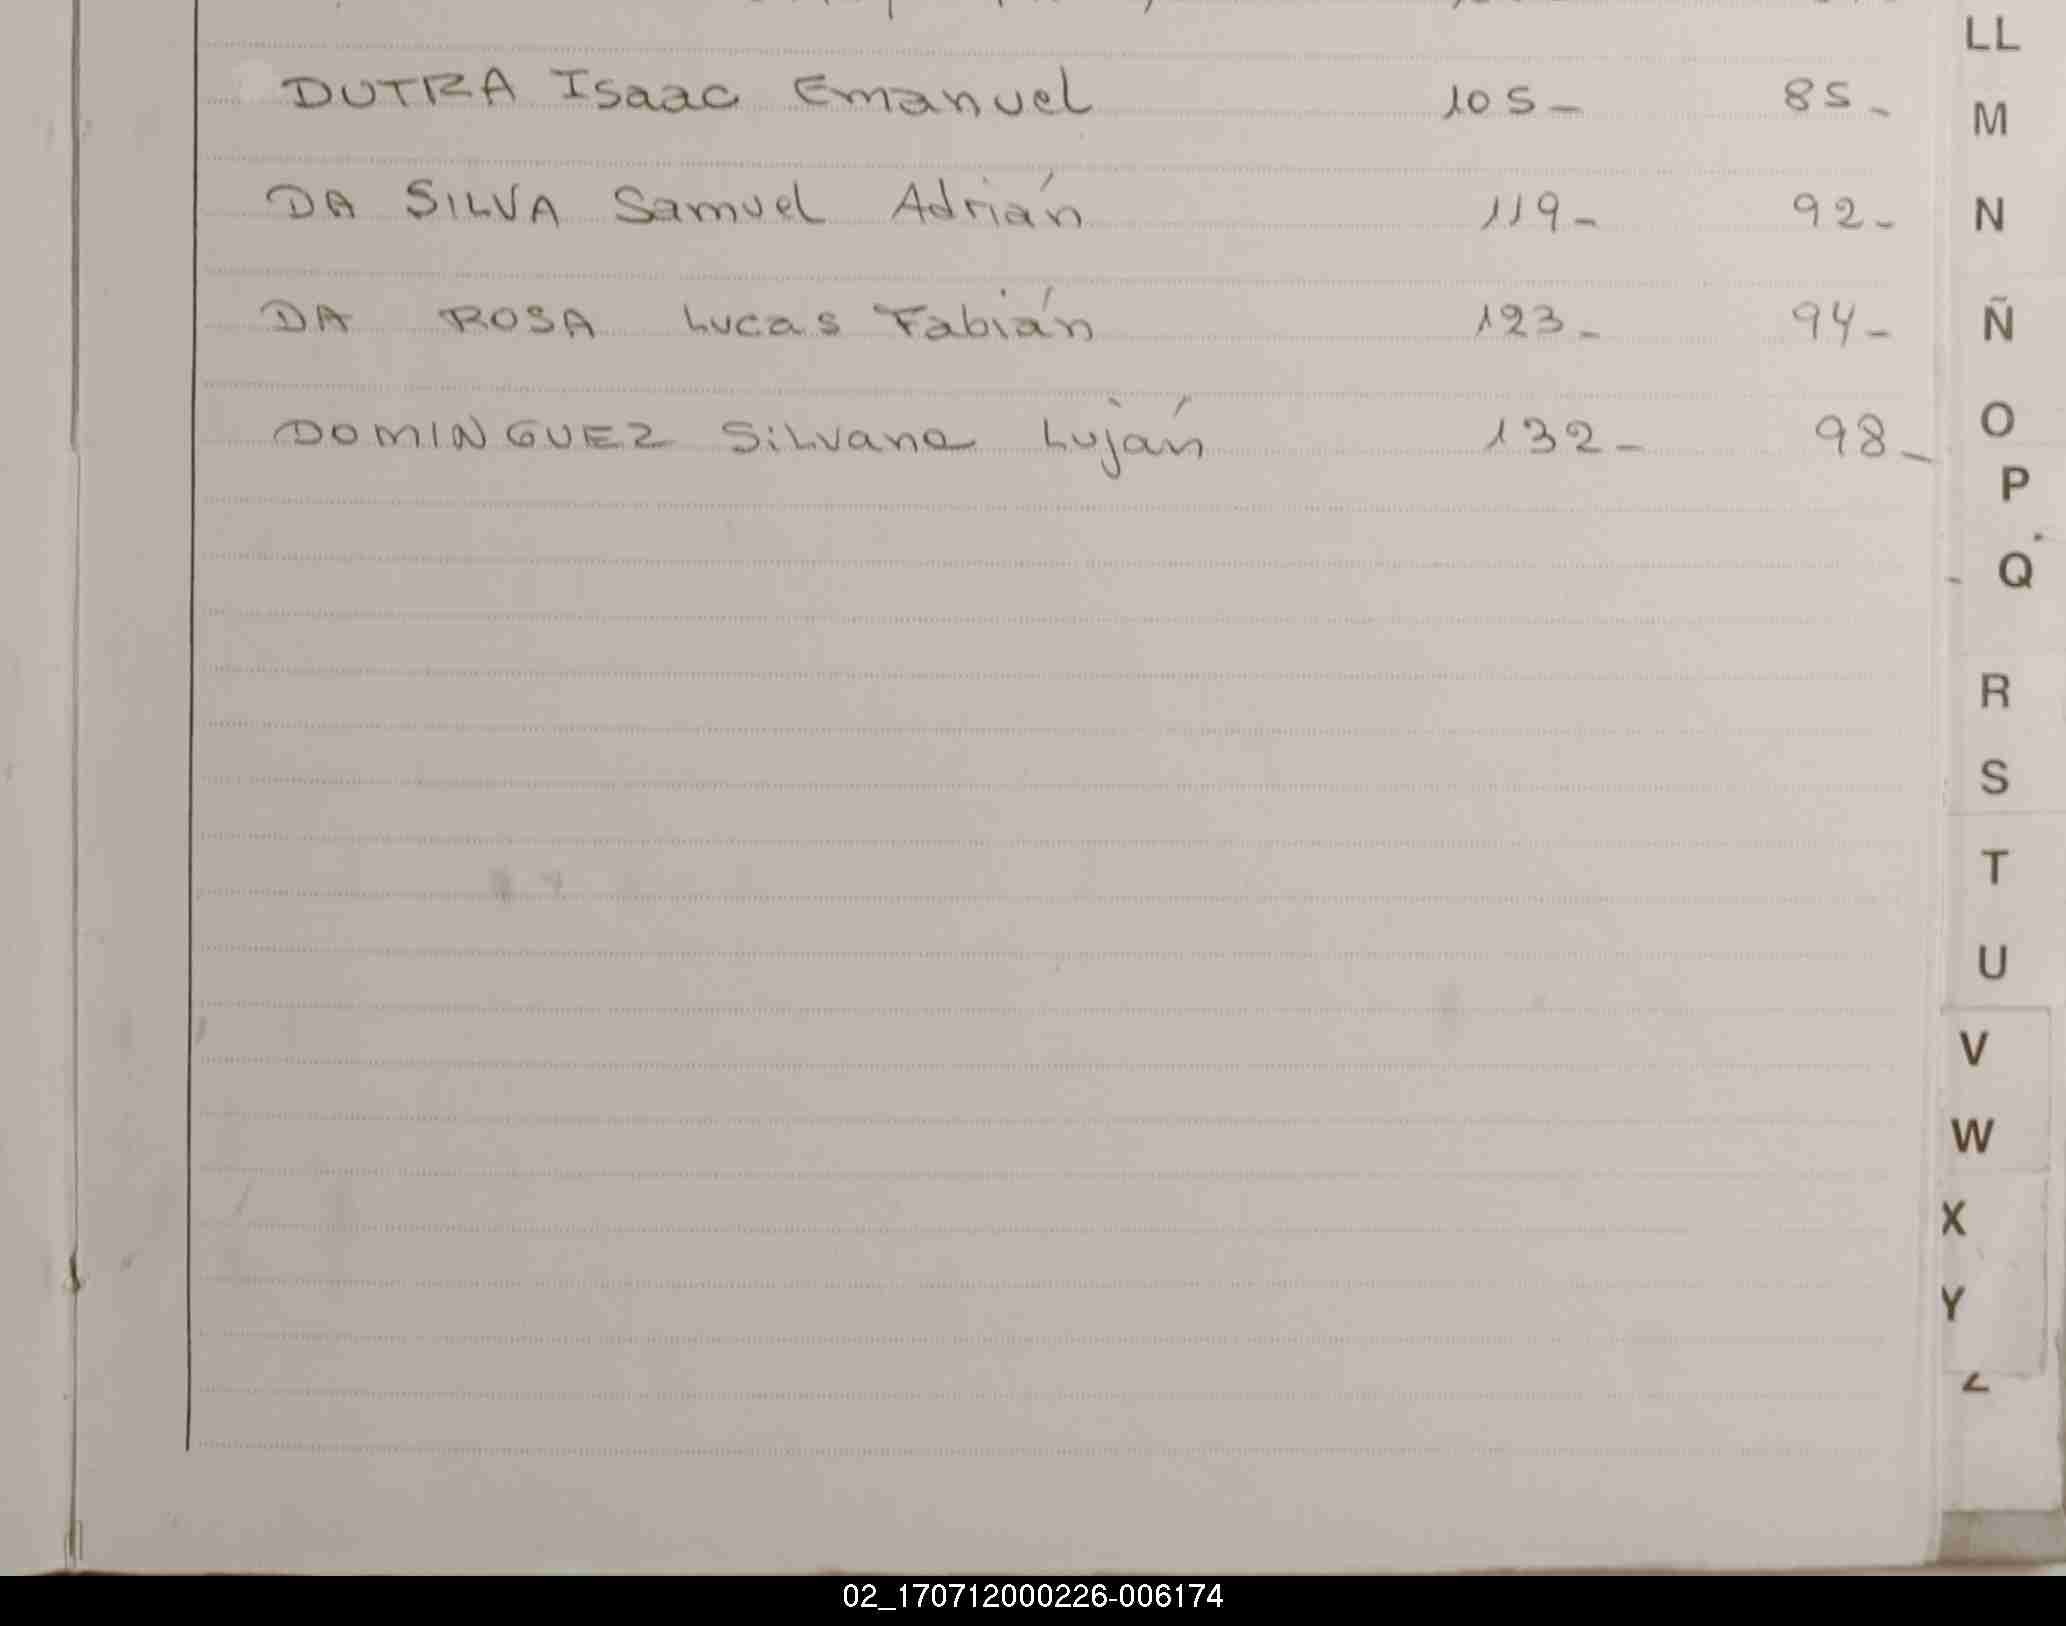 DUTRA Isaac Emanuel 105- 85-
DA SILVA Samuel Adrián 119- 92-
DA ROSA Lucas Fabián 123- 94-
DOMINGUEZ Silvana Luján 132- 98-
LL
M
N
Ñ
O
P
Q
R
S
T
U
V
W
X
Y
Z
02_170712000226-006174